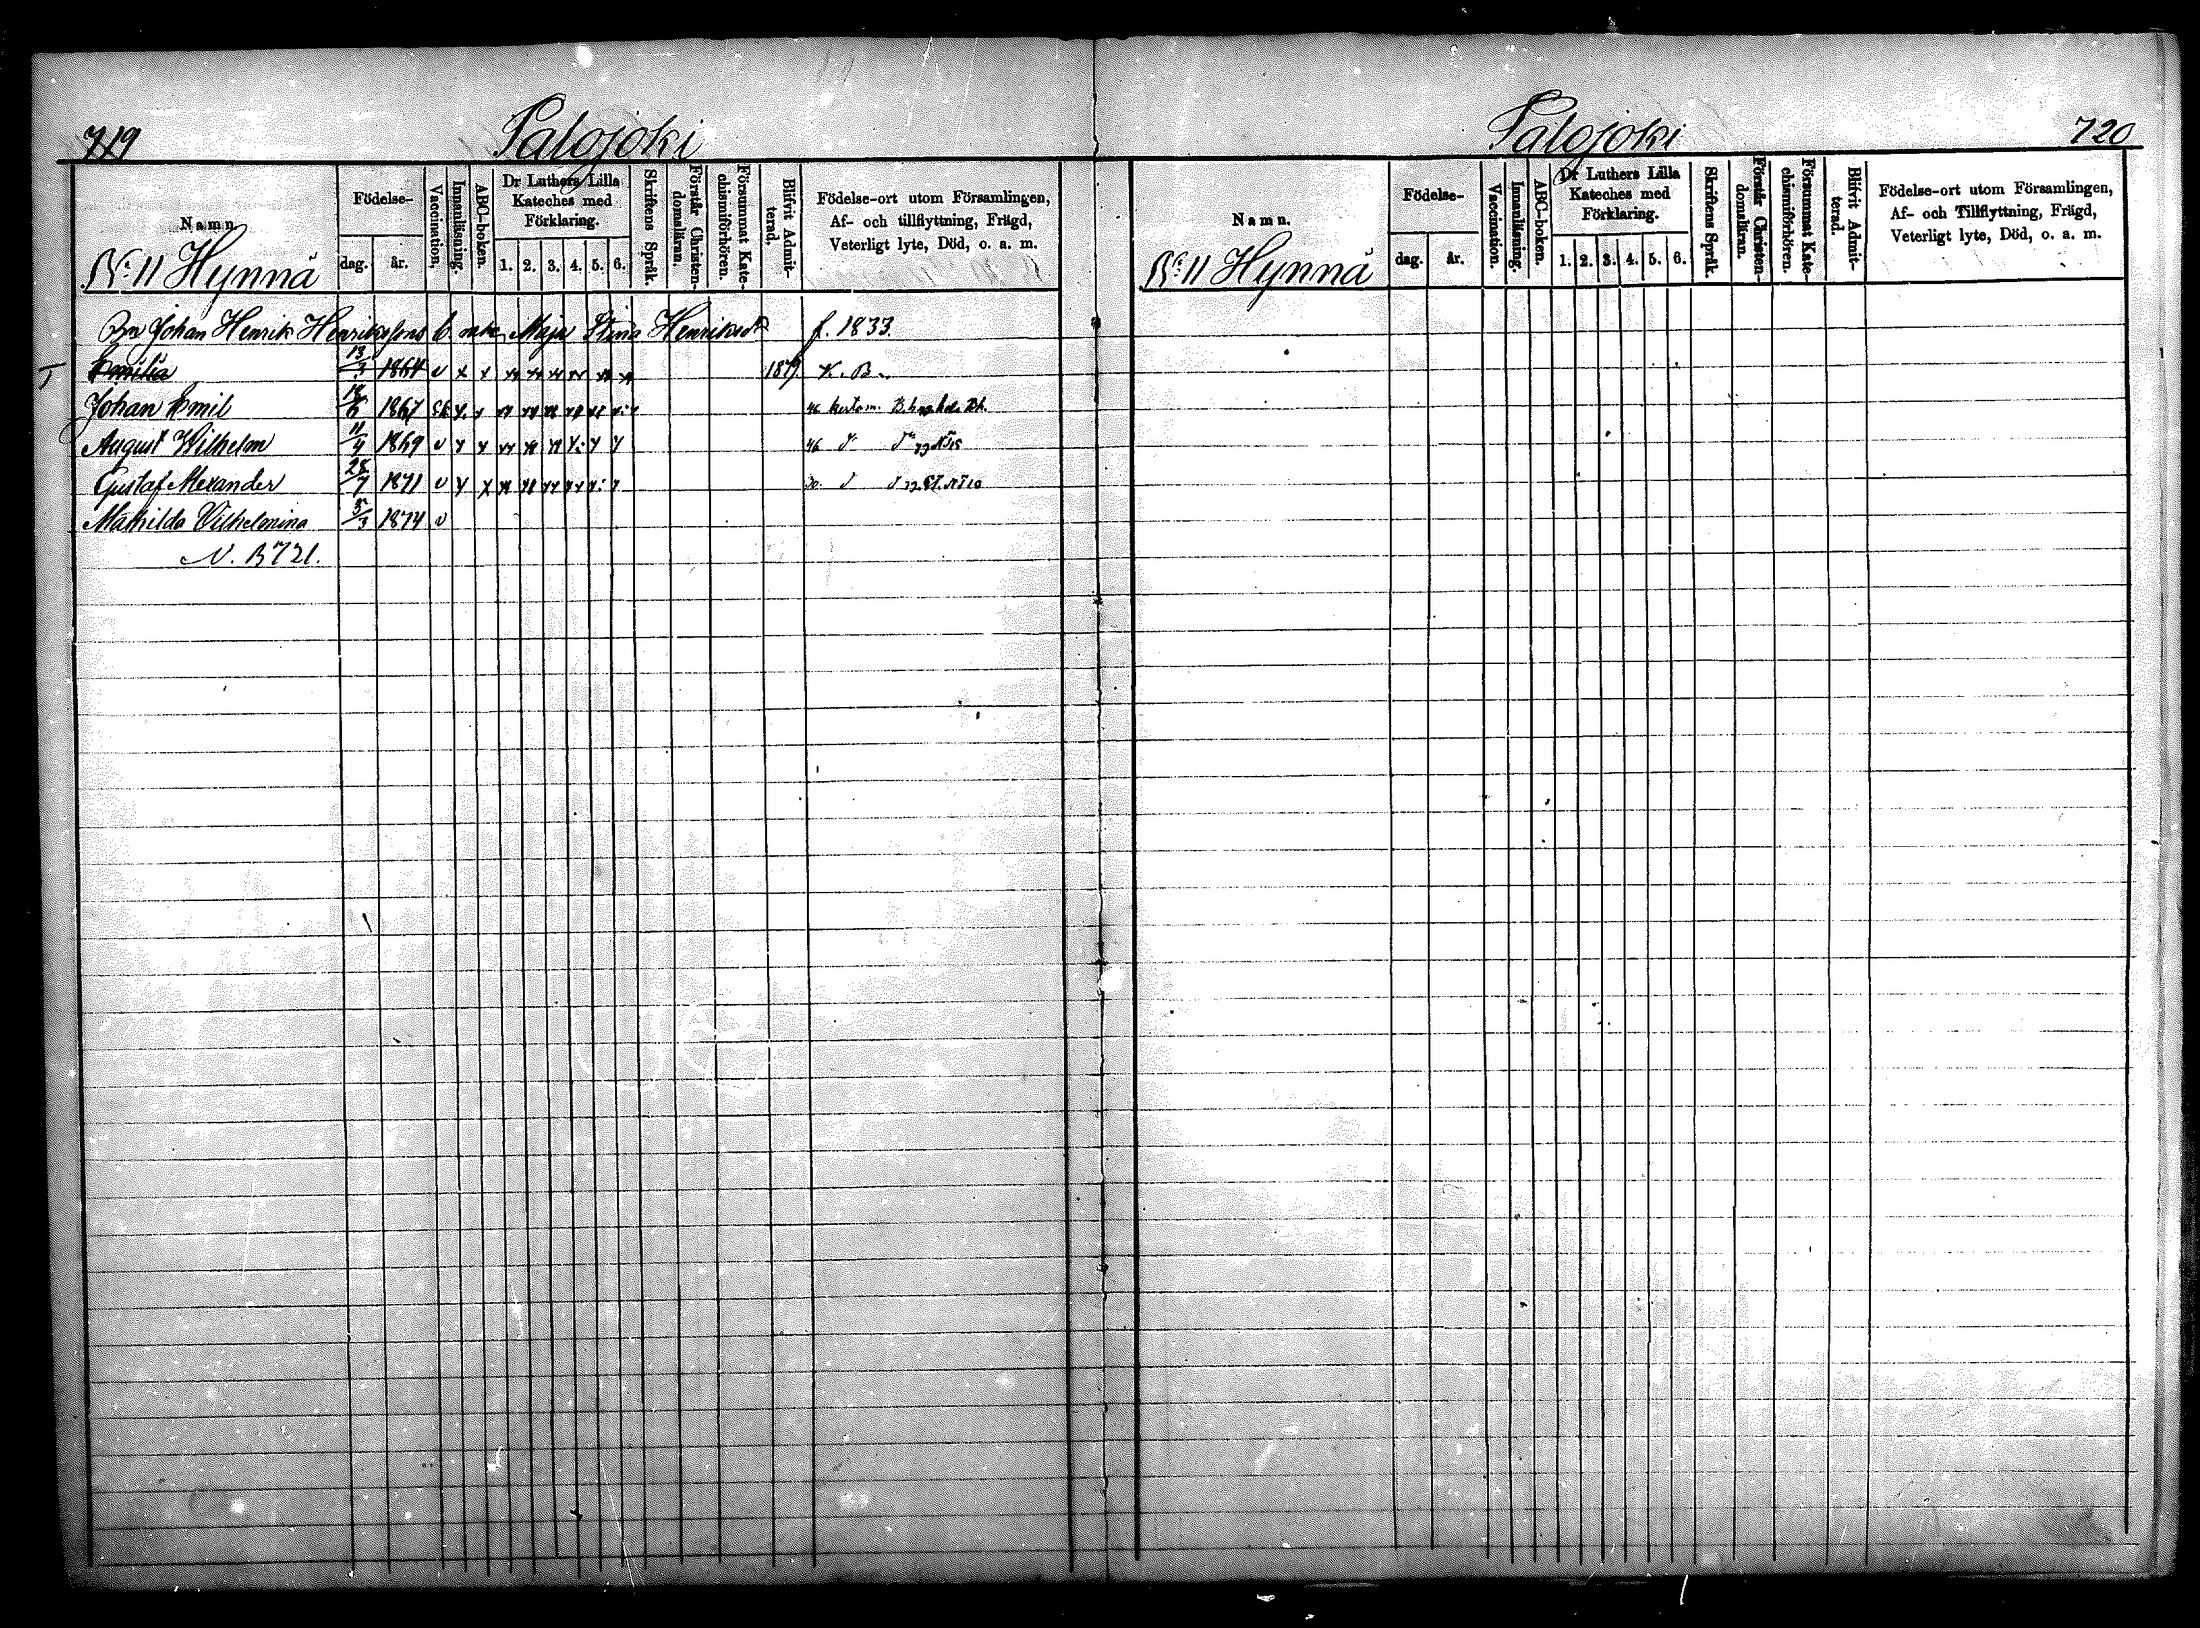 719
Palojoki
Namn.
Födelse-
dag.
år.
Vaccination.
Innanläsning.
ABC-boken.
Dr Luthers Lilla
Kateches med
Förklaring.
1. 2. 3. 4. 5. 6.
Skriftens Språk.
Förstår Christen-
domsläran.
Försummat Kate-
chismiförhören.
Blifvit Admit-
terad.
Födelse-ort utom Församlingen,
Af- och tillflyttning, Frägd,
Veterligt lyte, Död, o. a. m.
No 11 Hynnä
Bn Johan Henrik Henrikssons enka Maja Stina Henriksdr f. 1833.
Emilia 13/3 1864 v x x 1879 K. B.
Johan Emil 18/6 1867
August Wilhelm 11/4 1869 v
Gustaf Alexander 28/7 1871 v
Mathilda Vilhelmina 5/3 1874 v
N. B 721.
Palojoki
720
Namn.
Födelse-
dag.
år.
Vaccination.
Innanläsning.
ABC-boken.
Dr Luthers Lilla
Kateches med
Förklaring.
1. 2. 3. 4. 5. 6.
Skriftens Språk.
Förstår Christen-
domsläran.
Försummat Kate-
chismiförhören.
Blifvit Admit-
terad.
Födelse-ort utom Församlingen,
Af- och Tillflyttning, Frägd,
Veterligt lyte, Död, o. a. m.
No 11 Hynnä